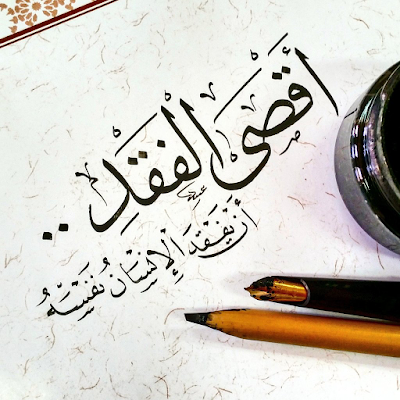 أقصى الفقدِ ..
أن يَفقد الإنسان نفسَهُ